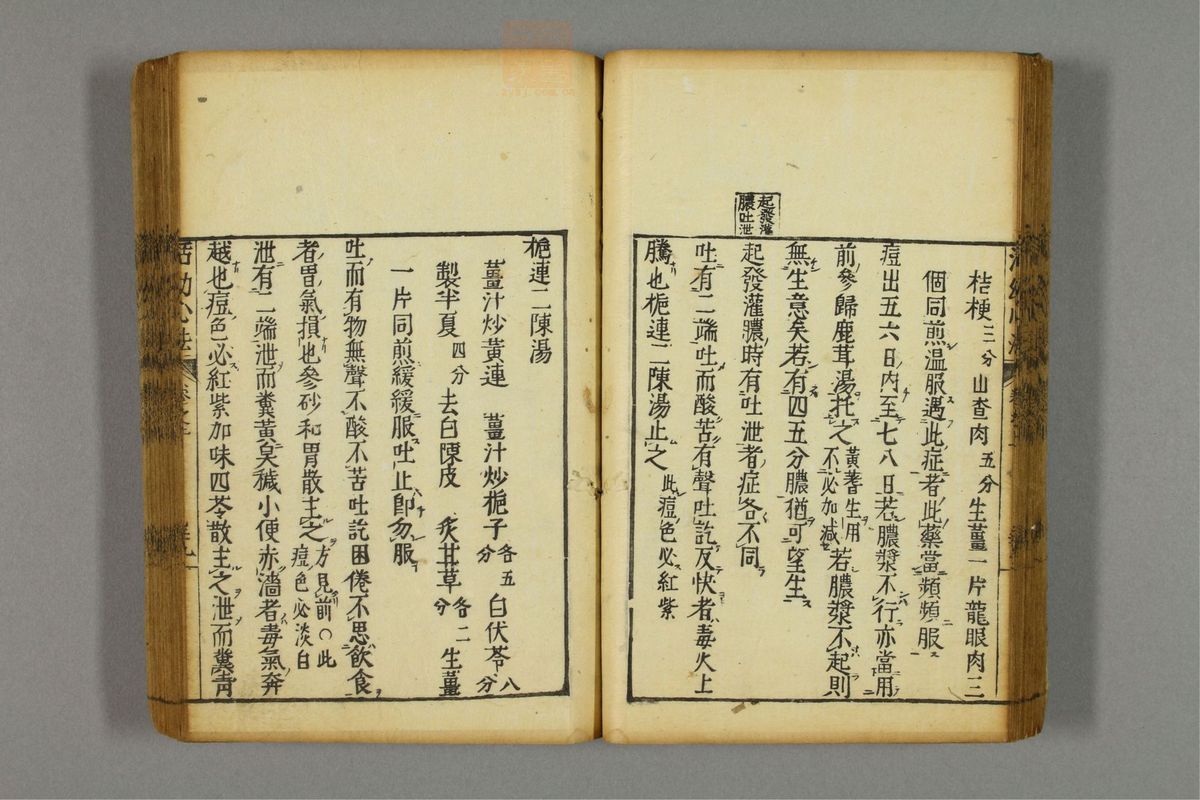 桔梗三分山查肉五分生薑一片龍眼肉三
個同煎温服遇此症者此藥當頻頻服
痘出五六日內至七八日若膿漿不行亦當用
前參歸鹿茸湯托之黃蓍生用不必加減若膿漿不起則
無生意矣若有四五分膿猶可望生
起發灌膿吐泄
起發灌膿時有吐泄者症各不同
吐有二端吐而酸苦有聲吐訖反快者毒火上
騰也梔連二陳湯止之此痘色必紅紫
梔連二陳湯
薑汁炒黃連 薑汁炒梔子各五分白伏苓八分
製半夏四分去白陳皮 炙甘草各二分生薑
一片同煎緩緩服吐止即勿服
吐而有物無聲不酸不苦吐訖困倦不思飲食
者胃氣損也參砂和胃散主之方見前○此痘色必淡白
泄有二端泄而糞黃臭穢小便赤濇者毒氣奔
越也痘色必紅紫加味四苓散主之泄而糞青
活幼心法 卷之